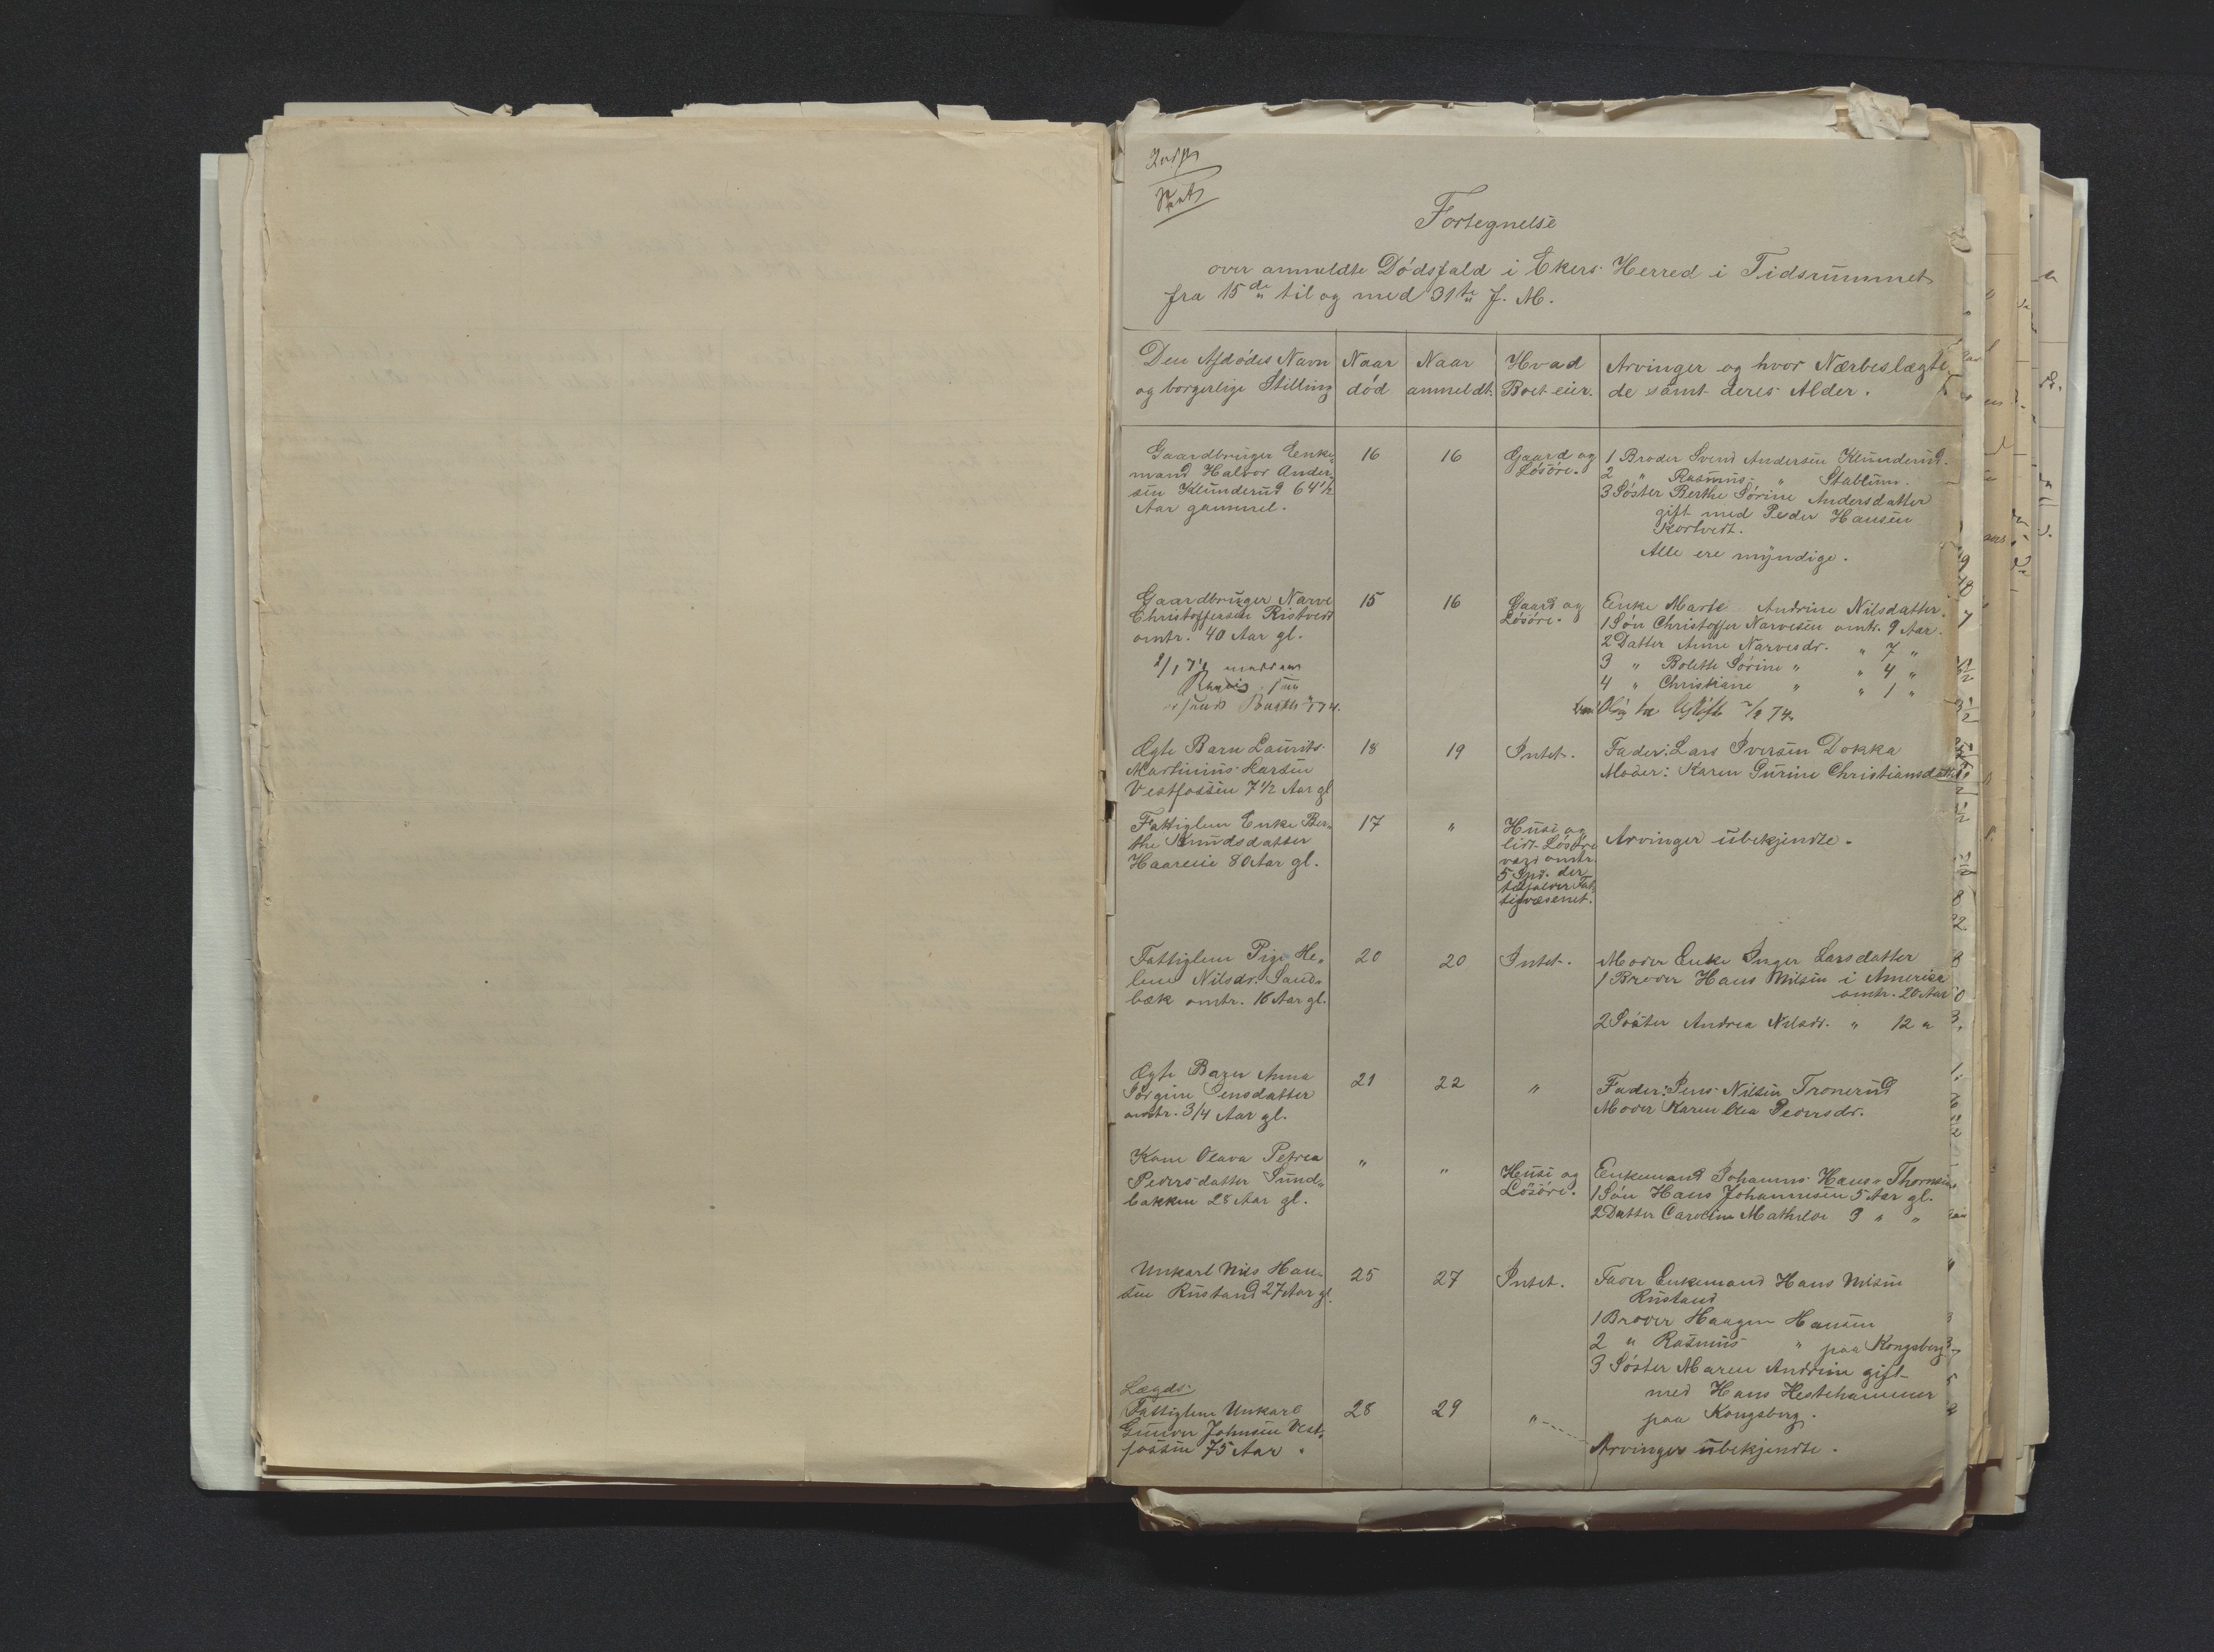 Fortegnelse
over anmeldte Dödsfald i Ekers Herred i Tidsrummet
fra 15de til og med 31te f. M.
Den Afdödes Navn og borgerlige Stilling
Naar död
Naar anmeldt.
Hvad Boet eier.
Arvinger og hvor Nærbeslægte
de samt deres Alder.
Gaardbruger Enke-
mand Halvor Ander-
sen Klunderud 64 1/2
Aar gammel.
16
16
Gaard og
Lösöre.
1 Broder Svend Andersen Klunderud.
2 " Rasmus " Stablum.
3 Söster Berthe Sörine Andersdatter
gift med Peder Hansen
Kortvedt.
Alle ere myndige.
Gaardbruger Narve
Christoffersen Ristvedt
omtr. 40 Aar gl.
15
16
Gaard og
Lösöre.
Enke Marte Andrine Nilsdatter.
1 Sön Christoffer Narvesen omtr. 9 Aar.
2 Datter Anne Narvesdr. " 7 "
3 " Bolette Sörine " " 4 "
4 " Christiane " " 1 "
Ægte Barn Laurits
Martinius Larsen
Vestfossen 7 1/2 Aar gl
18
19
Intet.
Fader: Lars Iversen Dokka
Moder: Karen Gurine Christiansdatter
Fattiglem Enke Ber-
the Knudsdatter
Haareie 80 Aar gl.
17
"
Husi og
lidt Lösöre
værd omtr.
5 Spd. der
tilfalder Fat-
tigvæsenet.
Arvinger ubekjendte.
Fattiglem Pige He-
lene Nilsdr. Sand-
bæk omtr. 16 Aar gl.
20
20
Intet.
Moder Enke Inger Larsdatter
1 Broder Hans Nilsen i Amerika
omtr. 20 Aar
2 Söster Andrea Nilsdr. " 12 "
Ægte Barn Anna
Jörgine Jensdatter
omtr. 3/4 Aar gl.
21
22
"
Fader: Jens Nilsen Tronerud
Moder Karen Olea Pedersdr.
Kone Olava Petrea
Pedersdatter Sund-
bakken 28 Aar gl.
"
"
Husi og
Lösöre.
Enkemand Johannes Hans. Thornsen
1 Sön Hans Johannesen 5 Aar gl.
2 Datter Caroline Mathilde 3 " "
Unkarl Nils Han-
sen Rustand 27 Aar gl.
25
27
Intet.
Fader Enkemand Hans Nilsen
Rustand
1 Broder Haagen Hansen
2 " Rasmus " paa Kongsberg
3 Söster Maren Andrine gift
med Hans Hestehammer
paa Kongsberg.
Lægds-
Fattiglem Unkarl
Gunder Johnsen Vest-
fossen 75 Aar.
28
29
"
Arvinger ubekjendte.